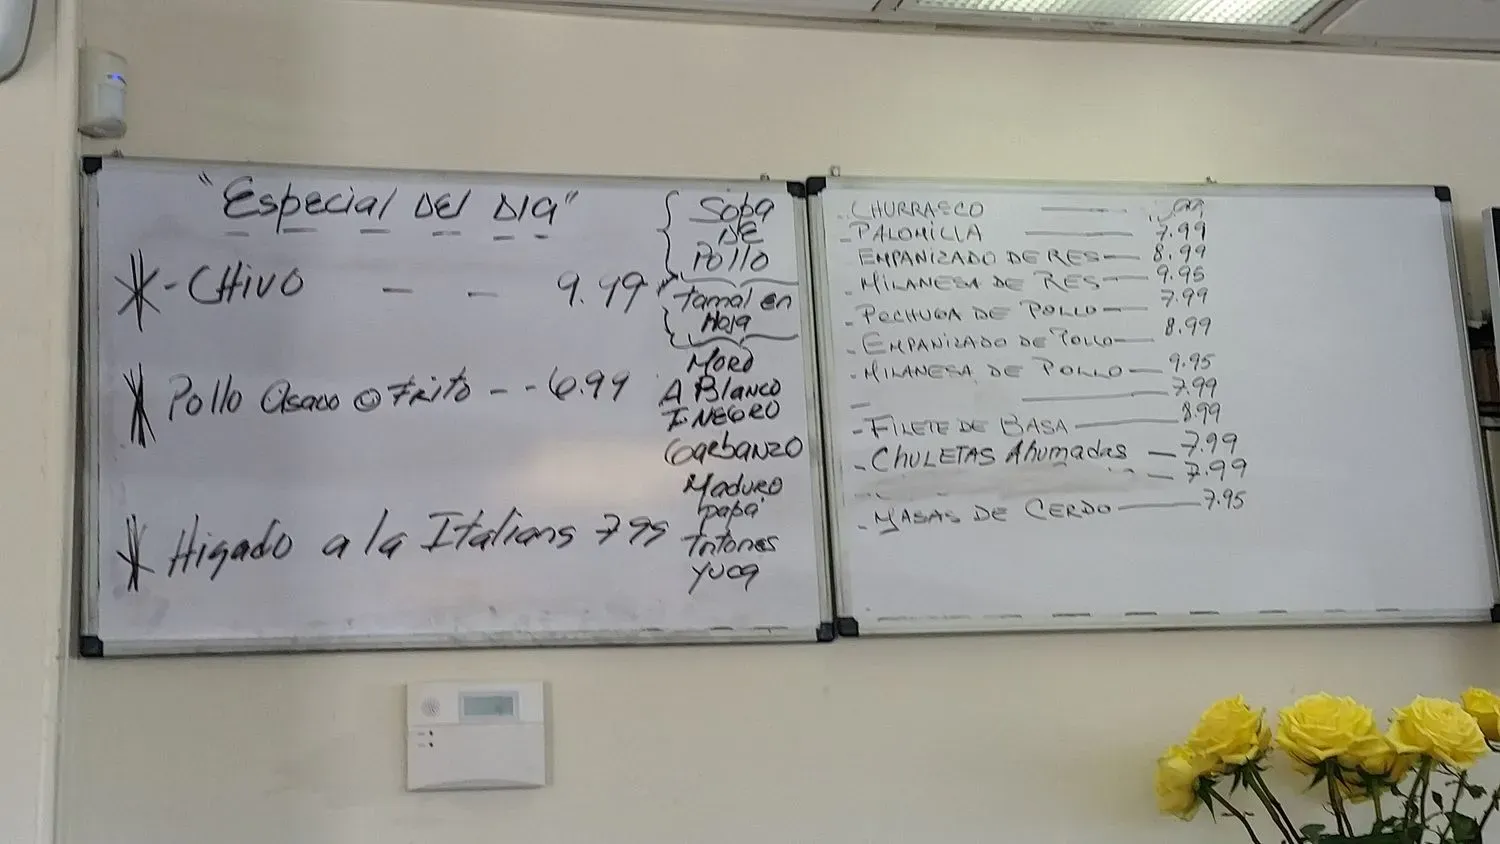 "Especial Del Dia"
- CHIVO - - 9.99
Pollo Asado o Frito - - 6.99
Higado a la Italiana 7.99
Sopa
DE
Pollo
Tamal en
Hoja
MORO
A BLANCO
I NEGRO
Garbanzo
MADURO
papa
Tostones
YUCA
- CHURRASCO
- PALOMILLA — 7.99
EMPANIZADO DE RES — 8.99
- MILANESA DE RES — 9.95
- PECHUGA DE POLLO — 7.99
- EMPANIZADO DE POLLO — 8.99
- MILANESA DE POLLO — 9.95
— — 7.99
- FILETE DE BASA — 8.99
- CHULETAS Ahumadas — 7.99
— 7.99
- MASAS DE CERDO — 7.95